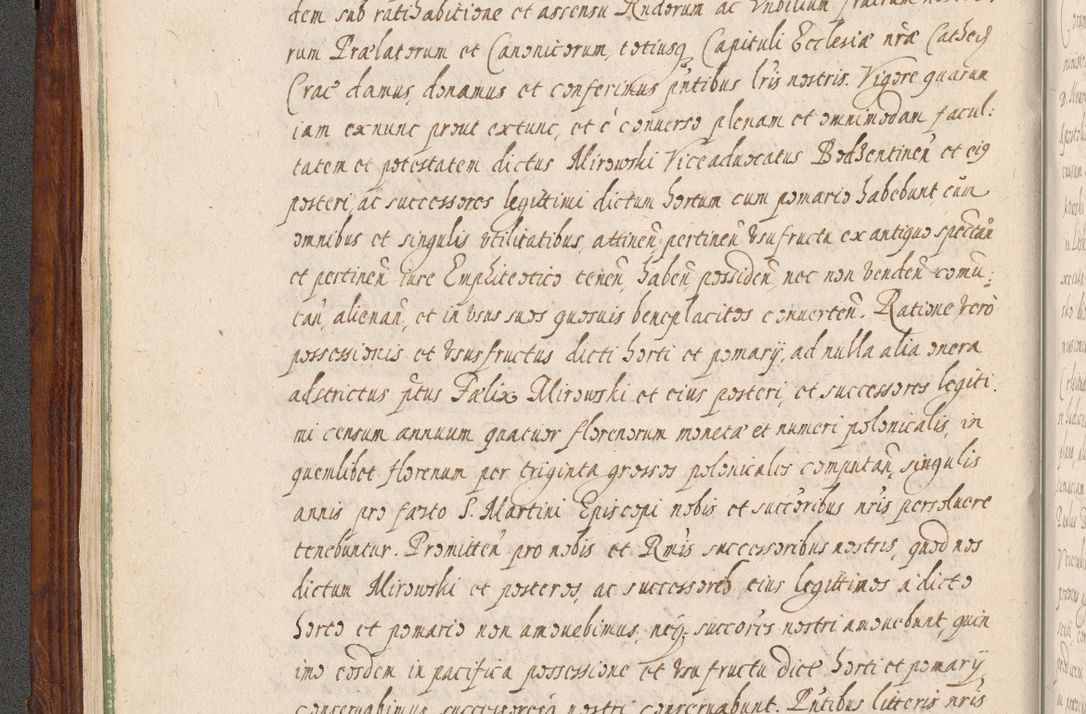 dem sub ratihabitione et assensu Rndorum ac Vnbilium fratrum nostro-
rum Prælatorum et Canonicorum, totiusq Capituli Ecclesiæ nræ Cathed
Crac damus, donamus et conferimus pntibus lris nostris. Vigore quarum
iam exnunc prout extunc, et è conuerso plenam et omnimodam facul:
tatem et potestatem dictus Mirowski Viceaduocatus Bodzentinen et eig
posteri, ac successores legittimi dictum hortum cum pomario habebunt, cum
omnibus et singulis vtilitatibus, attinen, pertinen, vsufructu ex antiquo spectan
et pertinen iure Emphiteotico tenen, haben, possiden, nec non venden comu:
tan, alienan, et in vsus suos quosuis beneplacitos conuerten. Ratione verò
possessionis et vsusfructus dicti horti et pomarij, ad nulla alia onera
adstrictus ptus Fælix Mirowski et eius posteri, et successores legiti:
mi censum annuum quatuor florenorum monetæ et numeri polonicalis, in
quemlibet florenum per triginta grossos polonicales computan, singulis
annis pro fæsto S. Martini Episcopi nobis et succoribus nris persoluere
tenebuntur. Promitten pro nobis et Rmis successoribus nostris, quod nos
dictum Mirowski et posteros, ac successores eius legittimos a dicto
horto et pomario non amouebimus, neq succoris nostri amouebunt quin
imo eosdem in pacifica possessione et vsufructu dict horti et pomarij
conseruabimus successoresq nostri conseruabunt. Pntibus litteris nris